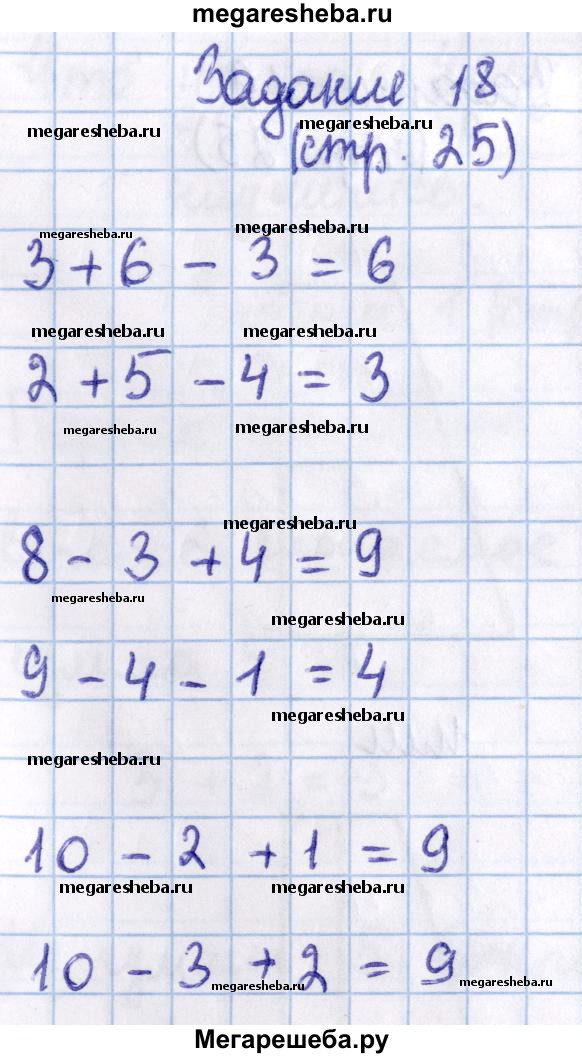 megaresheba.ru
Задание 18
megaresheba.ru megaresheba.ru
(стр. 25)
megaresheba.ru megaresheba.ru
3 + 6 - 3 = 6
megaresheba.ru megaresheba.ru
2 + 5 - 4 = 3
megaresheba.ru megaresheba.ru
megaresheba.ru
8 - 3 + 4 = 9
megaresheba.ru
megaresheba.ru
9 - 4 - 1 = 4
megaresheba.ru
megaresheba.ru
10 - 2 + 1 = 9
megaresheba.ru megaresheba.ru
10 - 3 + 2 = 9
megaresheba.ru megaresheba.ru
Мегарешеба.ру